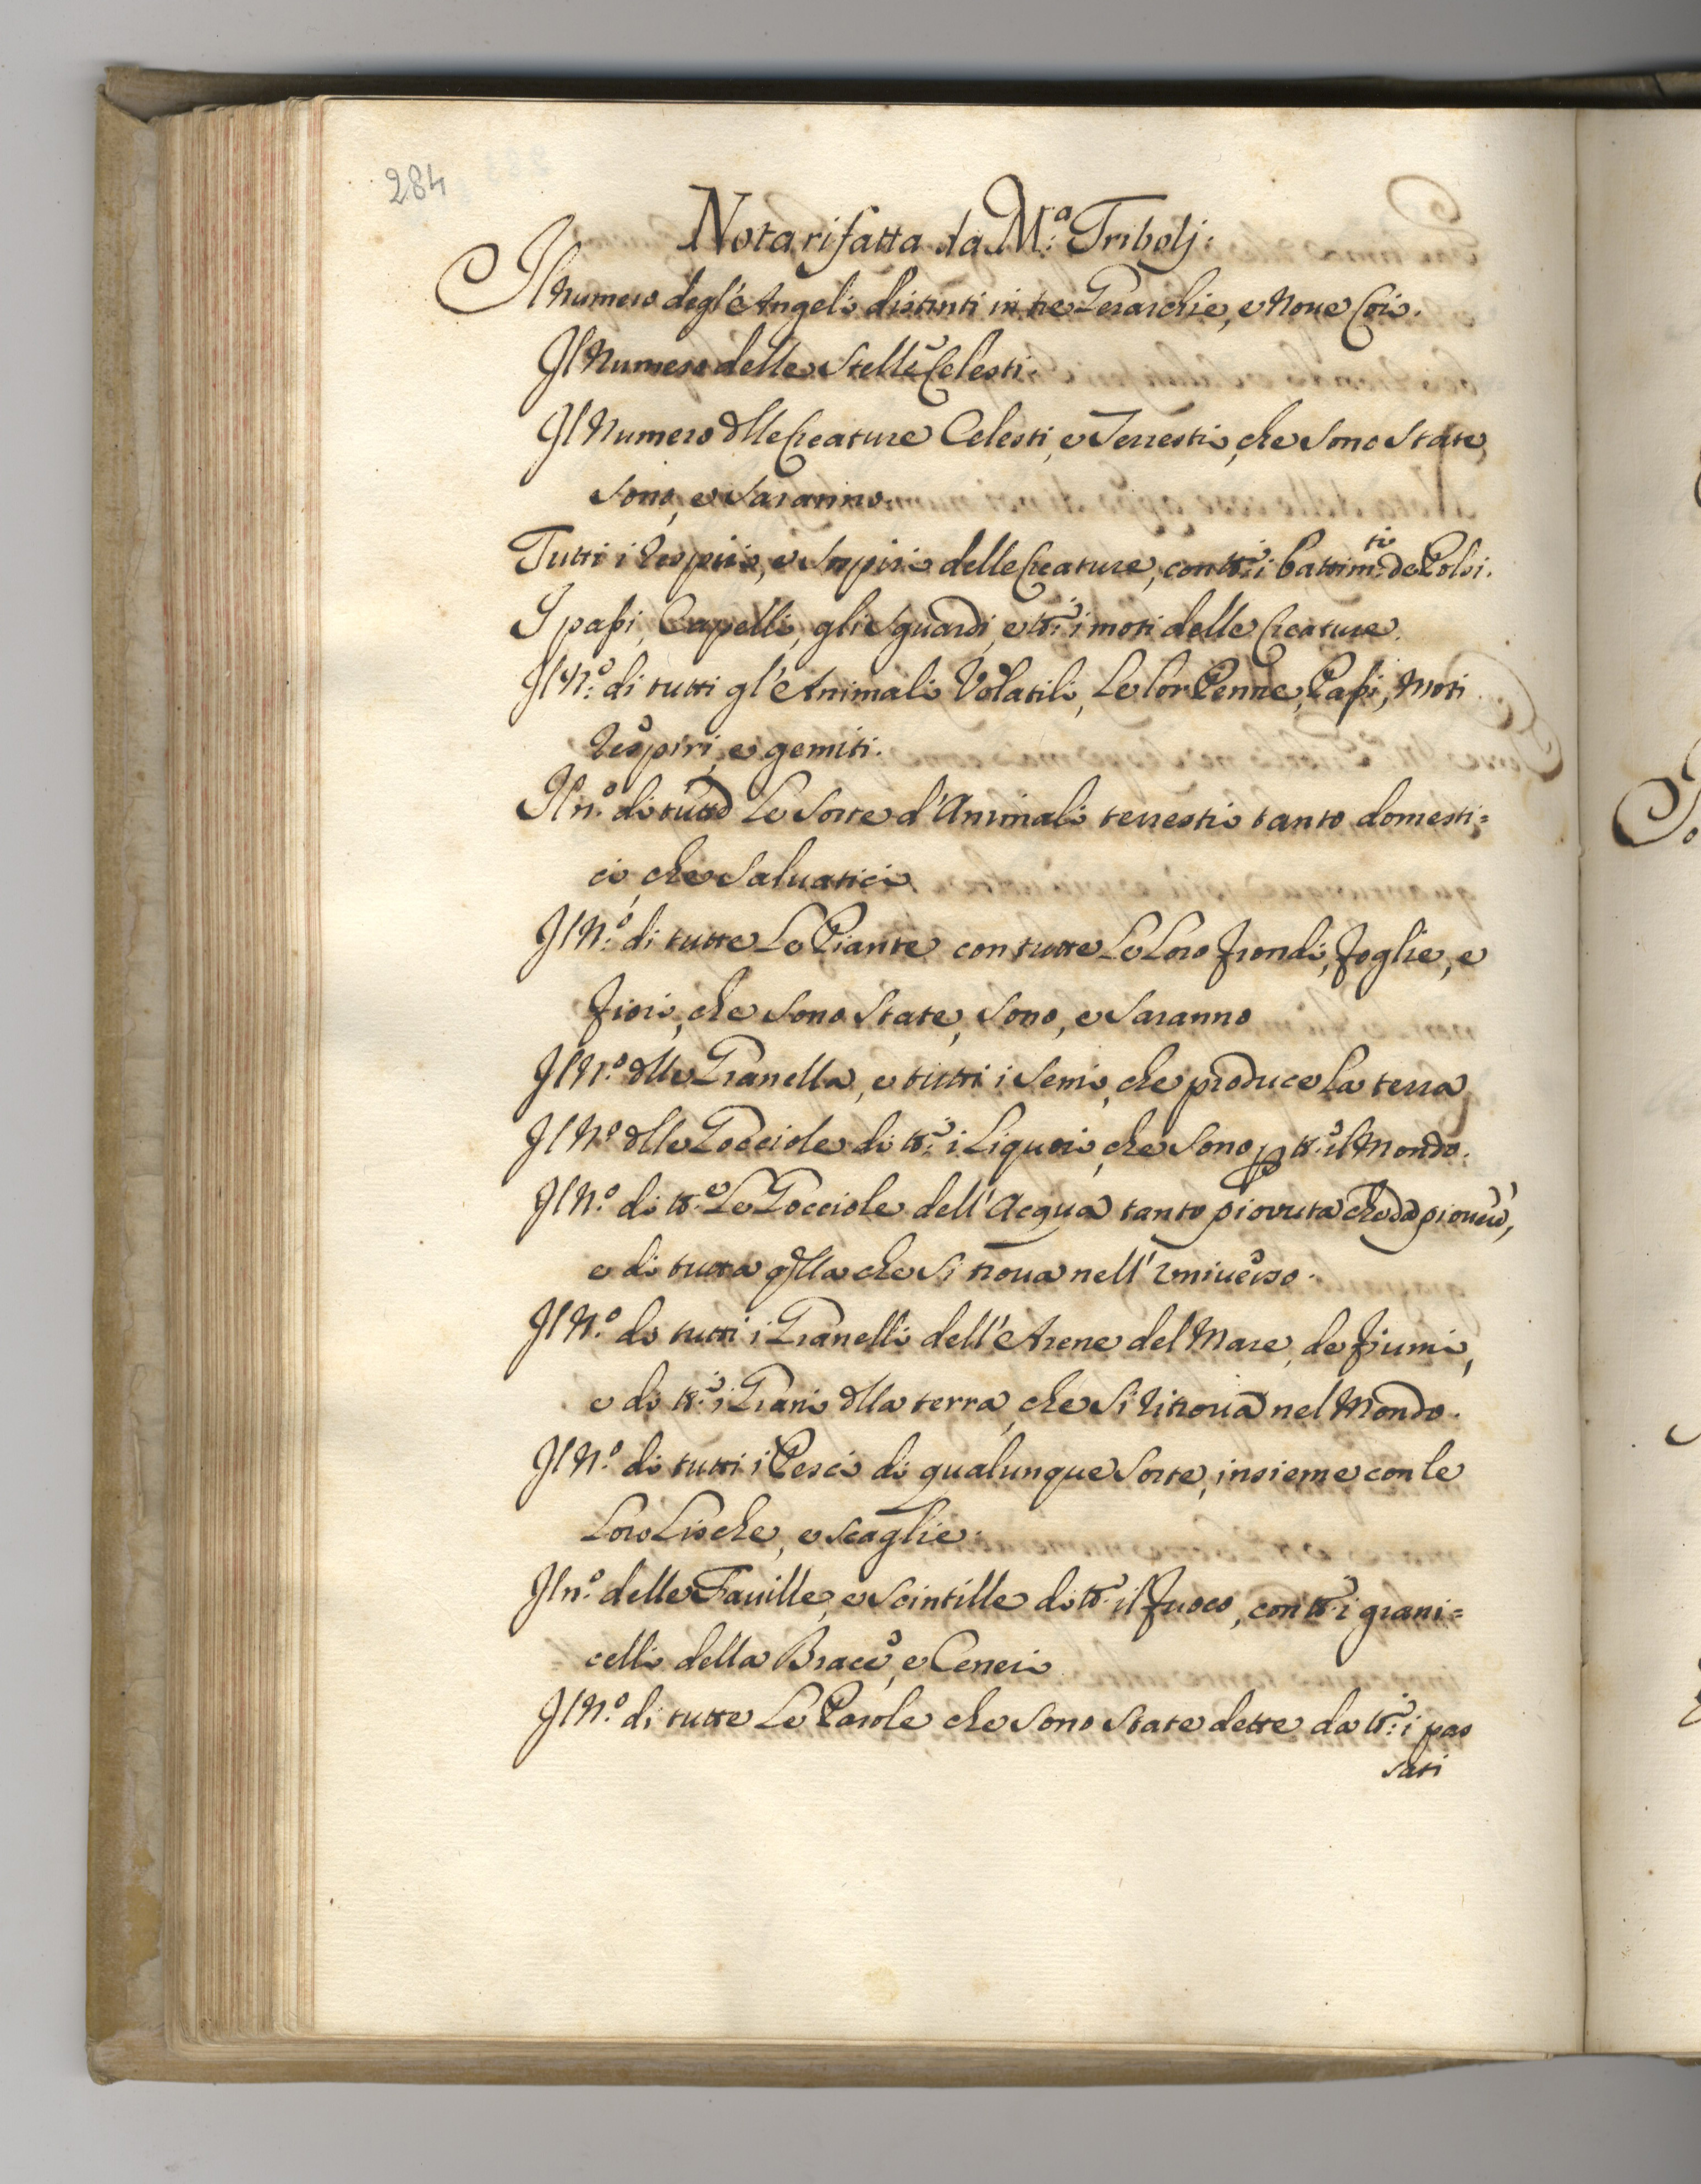 284
Nota rifatta da M.ª Tribolj.
Il numero degl'Angeli distinti in tre Gerarchie, e noue Cori.
Il Numero delle Stelle Celesti.
Il Numero dlle Creature Celesti, e Terrestri, che sono state,
sono, e saranno.
Tutti i respiri, e sospiri delle Creature, con tt.i i battim.ti de Polsi.
I passi, Capelli, gli sguardi, e tt.i i moti delle Creature.
Il N.º di tutti gl'Animali Volatili, Le lor Penne, Passi, Moti
respiri, e gemiti.
Il n.º di tutte Le sorte d'Animali terrestri tanto domesti=
ci, che saluatici.
Il N.º di tutte Le Piante con tutte Le Loro frondi, foglie, e
fiori, che sono state, sono, e saranno
Il N.º dlle Granella, e tutti i semi, che produce la terra
Il N.º dlle Gocciole di tt.i i Liquori, che sono p tt.º il Mondo.
Il N.º di tt.e Le Gocciole dell'Acqua tanto piovuta che da piouere,
e di tutta qlla che si troua nell'Vniuerso.
Il N.º di tutti i Granelli dell'Arene del Mare, de fiumi,
e di tt.i i Grani dlla terra, che si ritroua nel Mondo.
Il N.º di tutti i Pesci di qualunque sorte, insieme con le
Loro Lische, e scaglie.
Il n.º delle Fauille, e scintille di tt.º il fuoco, con tt.i i grani=
celli della Brace, e Ceneri
Il N.º di tutte Le Parole che sono state dette da tt.i i pas
sati